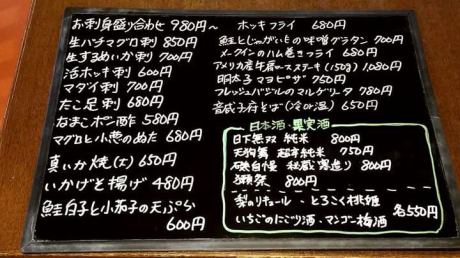 お刺身盛り合わせ 980円〜
生バチマグロ刺 850円
生するめいか刺 700円
活ホッキ刺 600円
マダイ刺 700円
たこ足刺 680円
なまこポン酢 580円
マグロと小葱のぬた 680円
真いか焼(大) 650円
いかげそ揚げ 480円
鮭白子と小茄子の天ぷら
600円
ホッキフライ 680円
鮭とじゃがいもの味噌グラタン 700円
メークインのハム巻きフライ 680円
アメリカ産牛肩ロースステーキ(150g) 1,080円
明太子マヨピザ 750円
フレッシュバジルのマルゲリータ 780円
音威子府そば(冷or温) 650円
日本酒・果実酒
日下無双 純米 800円
天狗舞 超辛純米 750円
磯自慢 秘蔵寒造り 800円
獺祭 800円
梨のリキュール・とろこく桃姫
いちごのにごり酒・マンゴー梅酒
各550円